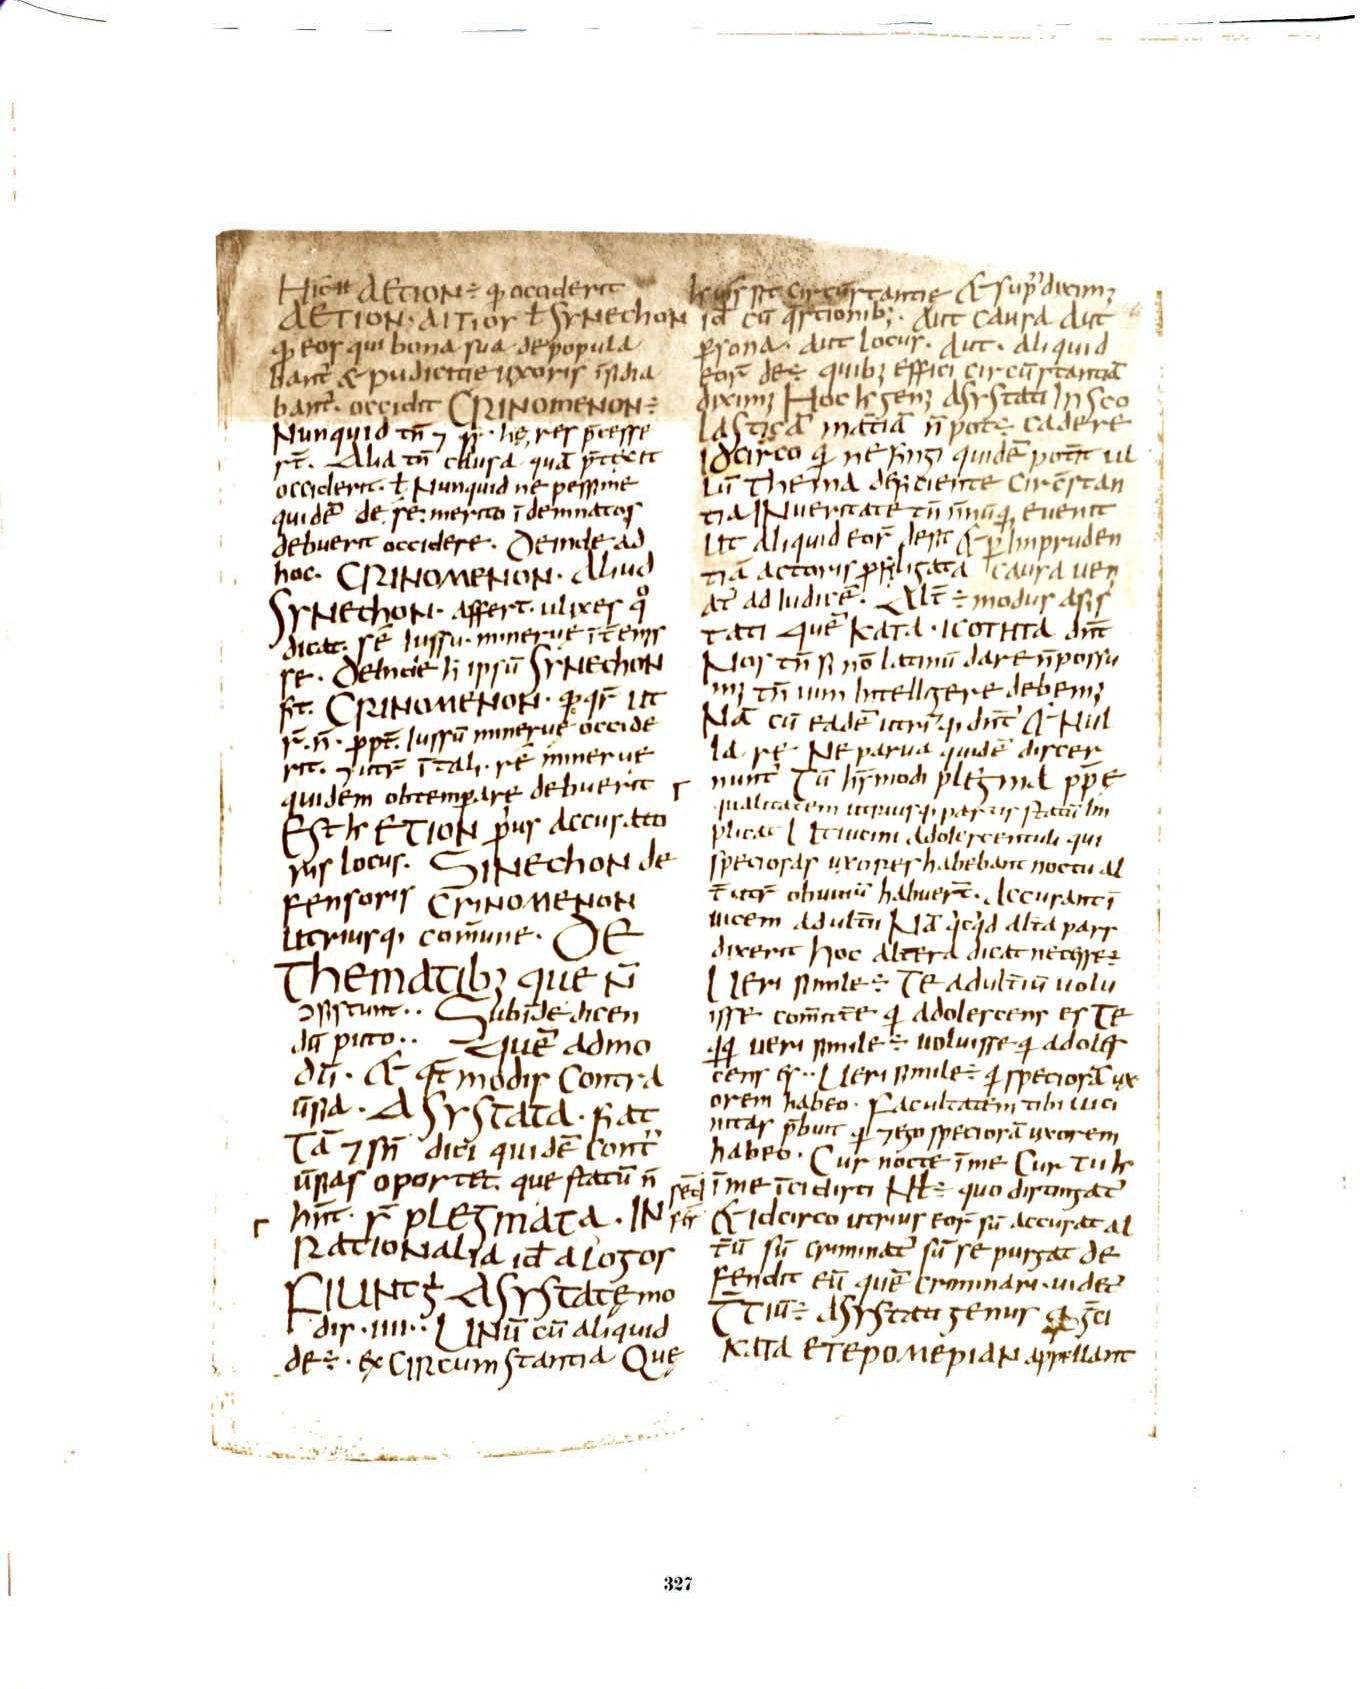 AETION ÷ occiderit
AETION · AITION ł SYNEChON
eos qui bona sua depopula
bant & pudicitie uxoris īsidia
bant̄ · occidit CRINOMENON ÷
Nunquid tn̄ ⁊ res p̄cesse
rt̄ · Alia tn̄ causa quā
occiderit · ł Nunquid ne pessime
quidē de se merito īdemnatos
debuerit occidere · Deinde ad
hoc · CRINOMENON · Aliud
SYNEChON · affert · ulixes
dicat · sē iussu · minerue
se · Deinde ipsū SYNEChON
fit · CRINOMENON · ut
iussū minerue occide
rit · minerue
quidem obtemperare debuerit
Est ETION p̄us accusato
ris locus · SINEChON de
fensoris CRINOMENON
utriusq; com̄une · DE
Thematib; que n̄
ɔsistunt ·· Subīde dicen
dū puto ·· Quē admo
dū · & qt̄ modis contra
ūsia · ASYSTATA · fiat
Tā ⁊ sn̄ dici quidē contr
ūsias oportet · que statū n̄
hn̄t · PLEGMATA · IN
RATIONALIA id̄ alogos
FIUNT ASYSTATE mo
dis · IIII ·· UNū cū aliquid
de÷ · ex CIRCUmstantia Que
circūstantie & sup̄ diximꝫ
id̄ cū q̄stionibꝫ · Aut causa Aut
p̄sona · Aut locus · Aut · Aliquid
eor̄ de÷ quibꝫ effici circūstantiā
diximꝫ hoc genꝫ Asystati in sco
lasticā mat̄iā n̄ pot÷ cadere
Idcirco ne fingi quidē pot̄it ul
lū thema deficiente circūstan
tia INueritate tn̄ euenit
ut aliquid eor̄ desit & p̄ impruden
tiā actoris causa uen
at̄ ad iudicē · Alt̄ ÷ modus asis
tati quē KATA · ICOTHTA dn̄t
Nos tn̄ si nō latinū dare n̄ possu
mꝫ tn̄ uim intellegere debemꝫ
NĀ cū eadē utriq; dn̄t & Nul
la re Ne parua quidē discer
nunt Tū plegma pp̄e
qualitatem utriusq; partis statū im
plicat Uticini adolescentuli qui
speciosas uxores habebant noctu al
obuiū habuer̄t · Accusant ī
uicem adult̄ii NĀ q̇cq̇d alt̄a pars
dixerit hoc altera dicat necesse÷
Ueri simile ÷ Te adult̄iū uolu
isse com̄itt̄e adolescens es Te
ueri simile ÷ uoluisse adoles
cens es ·· Ueri simile ÷ speciosā ux
orem habeo · Facultatem tibi uici
nitas p̄buit ⁊ ego speciosā uxorem
habeo · Cur nocte ī me Cur Tu
sed ī me īcidisti Nł ÷ quo distingat̄
& Idcirco utrius eor̄ sū accusat al
t̄ū sū criminat̄ sū se purgat de
fendit eū quē criminari · uidet̄
T̄tiū ÷ Asystati genus
KATA ETEPOMEPIAN appellant
327